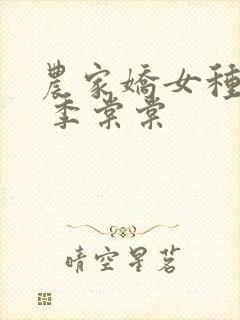 農家嬌女種
季棠棠
晴空星茗